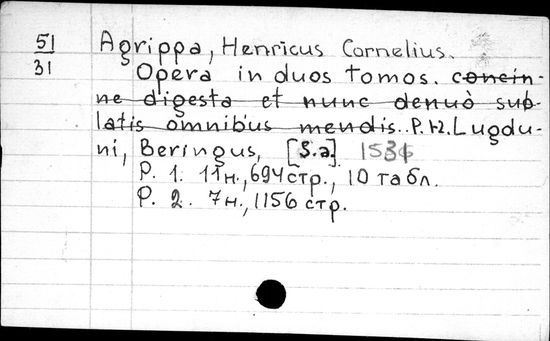 51
31
Agrippa, Henricus Cornelius.
Opera in duos tomos. concin-
ne digesta et nunc denuò sub-
latis omnibus mendis.. P. 1-2. Lugdu-
ni, Beringus, [S.a.]
P. 1. 11 н., 694 стр., 10 табл.
P. 2. 7 н., 1156 стр.